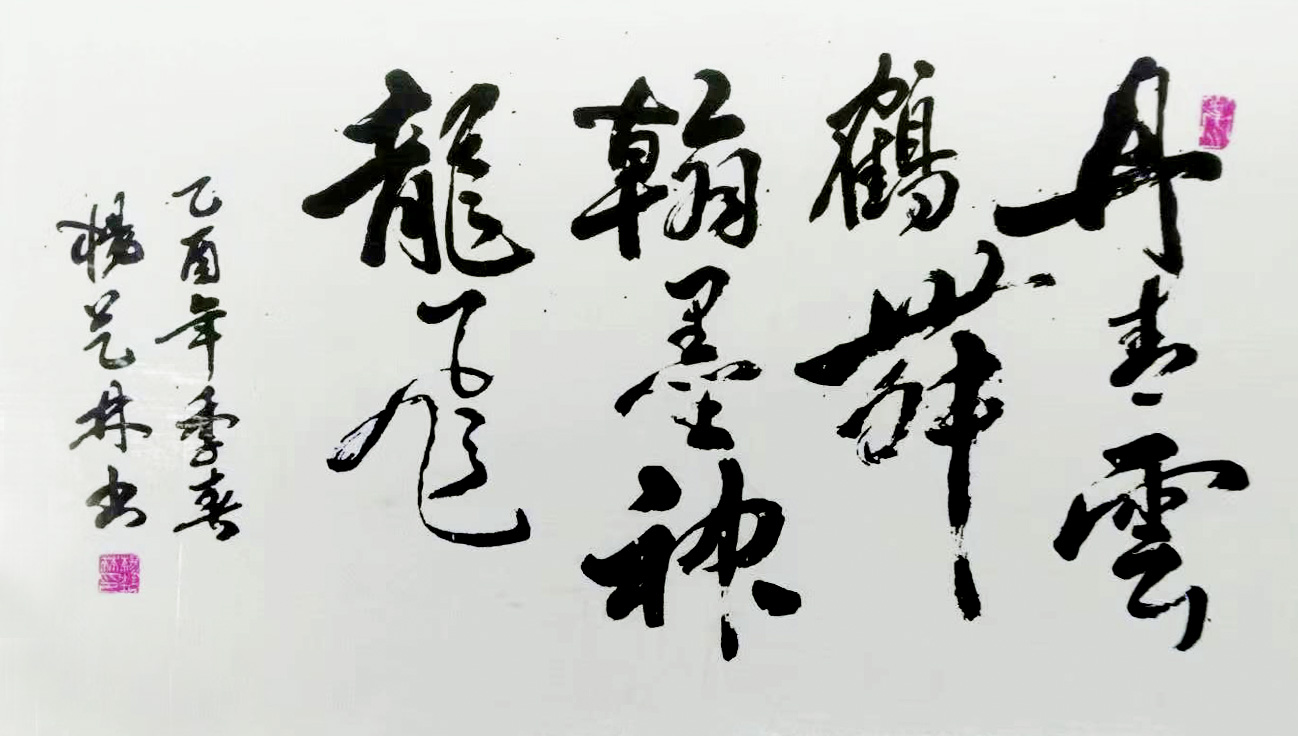 丹青雲
鶴舞
翰墨神
龍飛
乙酉年季春
楊艺林书